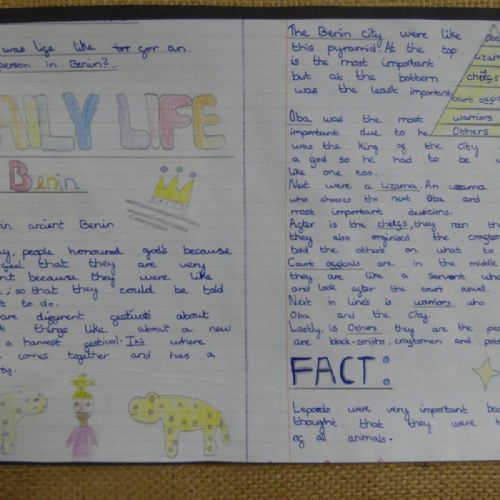 was life like for an
person in Benin?
AILY LIFE
Benin
in ancient Benin
people honoured god's because
feel that they are very
because they were like
so that they could be told
to do.
are different festivals about
things like about a new
a harvest festival. It's where
comes together and has a
The Benin city were like
this pyramid. At the top
is the most important
but at the bottem
was the least important
Oba was the most
important due to he
was the king of the city
a god so he had to be
like one too.
Next were a uzama. An uzama
who chooses the next Oba and
most important desicions.
After is the chiefs, they ran the
they also orginised the craftsm
told the others on what to
Court officals are in the middle
they are like a servent who
and look after the court aswell.
Next in line's is warriors who
Oba and the City.
Lastly, is Others they are the pe
are black-smiths, craftsmen and pott
Oba
uzama
chiefs
court offic
warriors
Others
FACT:
Lepords were very important beca
thought that they were t
of all animals.